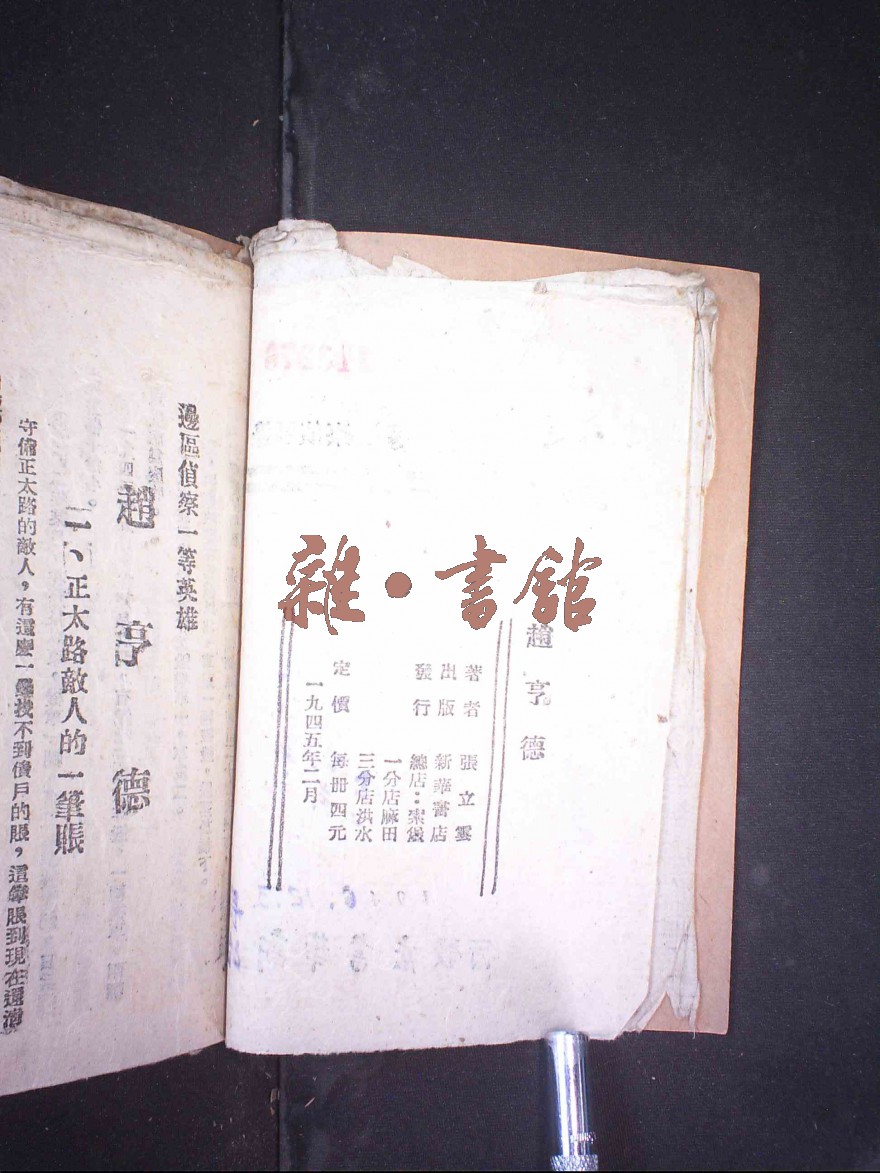 雜·書館
趙亨德
著者 張立雲
出版 新華書店
發行 總店：索堡
一分店麻田
三分店洪水
定價 每冊四元
一九四五年二月
邊區偵察一等英雄
趙亨德
一、正太路敵人的一筆賬
守備正太路的敵人，有這麼一筆找不到債戶的賬，這筆賬到現在還